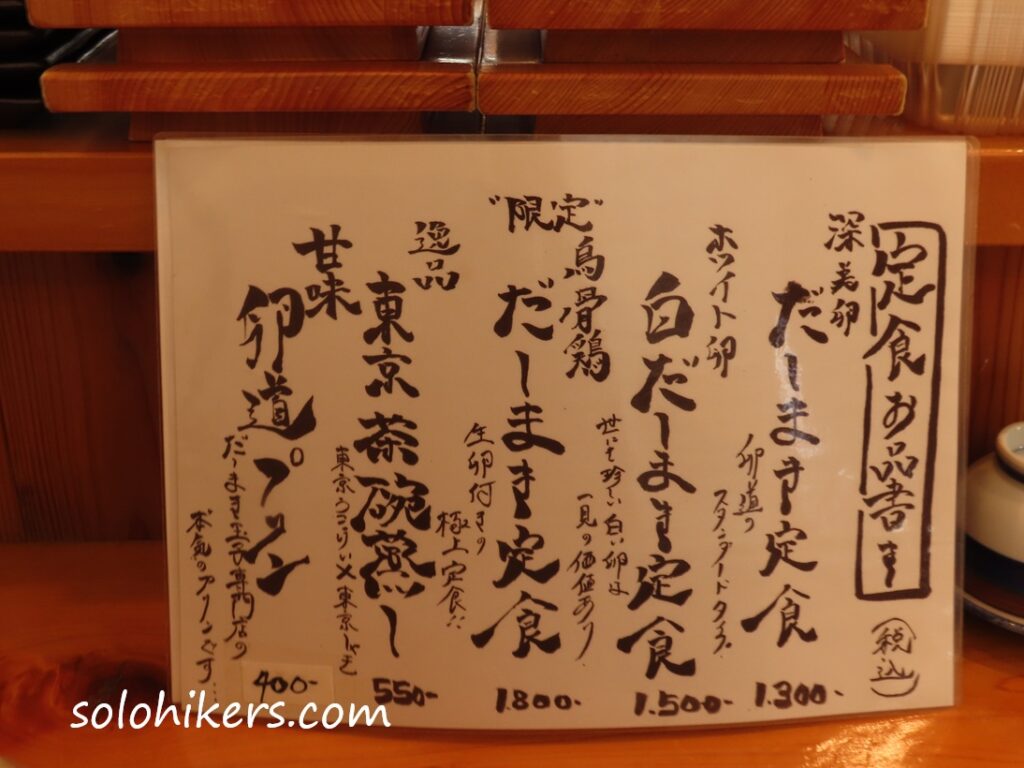 定食お品書き
(税込)
深美卵
だしまき定食
卵道の
スタンダードタイプ
1.300-
ホワイト卵
白だしまき定食
世にも珍しい白い卵は
一見の価値あり
1.500-
"限定"
烏骨鶏
だしまき定食
生卵付きの
極上定食!!
1.800-
逸品
東京茶碗蒸し
550-
甘味
卵道プリン
だしまき玉子専門店の
本気のプリンです…
400-
solohikers.com